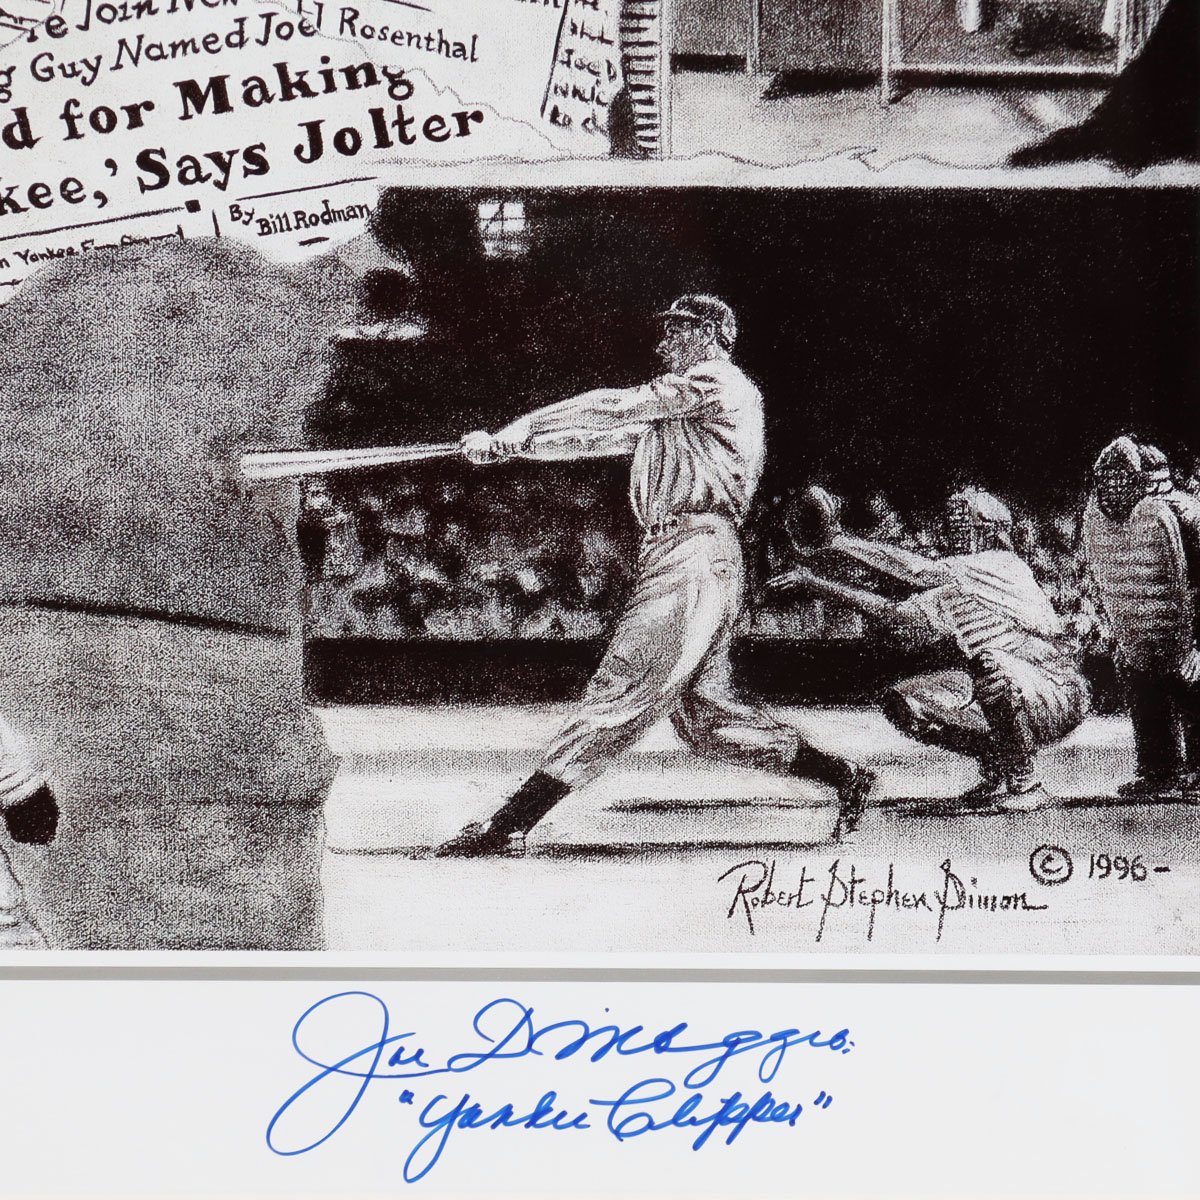 Join New
Guy Named Joe Rosenthal
d for Making
kee,' Says Jolter
By
Bill Rodman
n Yankee
Joe D
Robert Stephen Simon © 1996-
Joe DiMaggio
"Yankee Clipper"